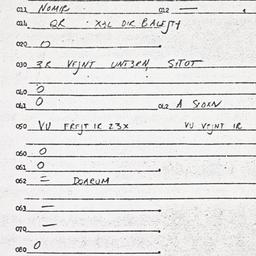 011 NOMIR 012 —
014 QR XAL DIR BALEJTY
020 O
030 3R VEJNT UNT3RN SITOT
040 O
041 O 042 A SIORN
050 VU FREJT IR 23X VU VEJNT IR
060 O
061 O
062 = DOARUM
063 —
070 —
080 O